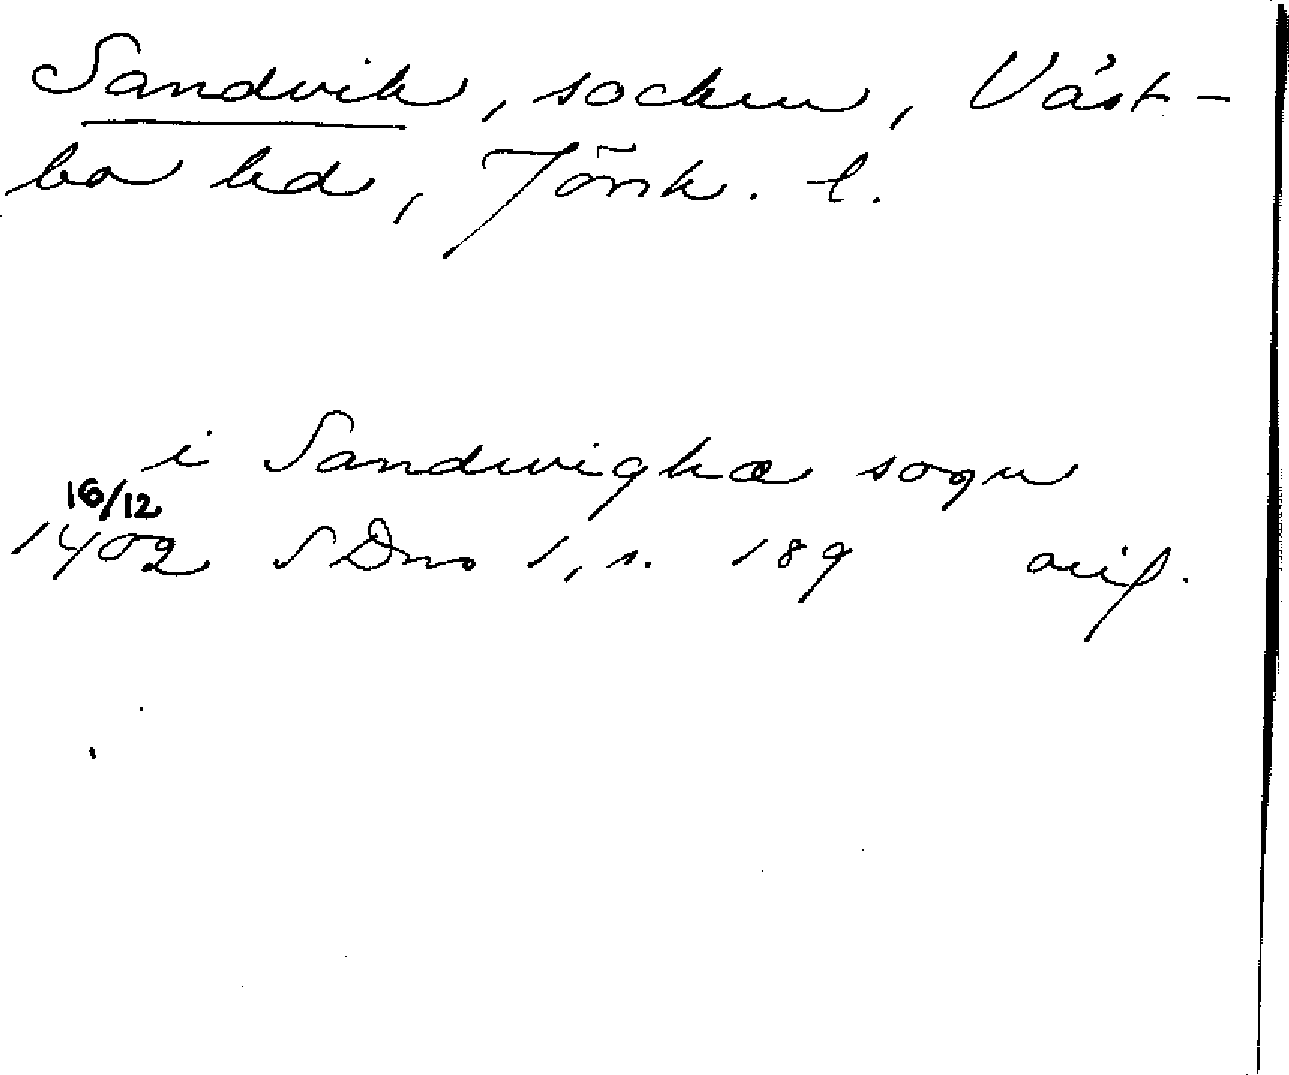 Sandvik, socken, Väst-
bo hd, Jönk. l.
i Sandwighæ sogn
16/12
1402 SDns 1, s. 189 avs.